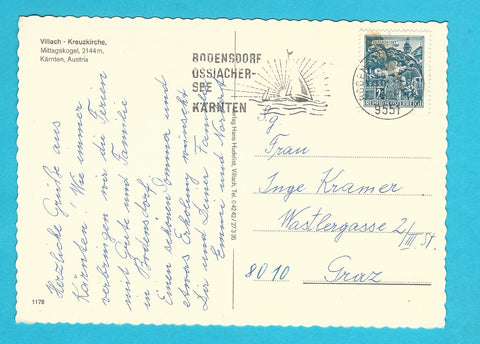 Villach - Kreuzkirche,
Mittagskogel, 2144m.
Kärnten, Austria
BODENSDORF
OSSIACHER-
SEE
KÄRNTEN
9551
REPUBLIK ÖSTERREICH
Herzliche Grüße aus
Kärnten! Wie immer
verbringen wir die Ferien
mit Gute und Familie
in Bodensdorf.
Einen schönen Sommer und
etwas Erholung wünscht
Dir und Deiner Familie
Emmi und Norbert
Verlag Hans Villach, Tel. 04242/27335
Sg
Frau
Inge Kramer
Wastlergasse 2/
III. St.
8010 Graz
1178